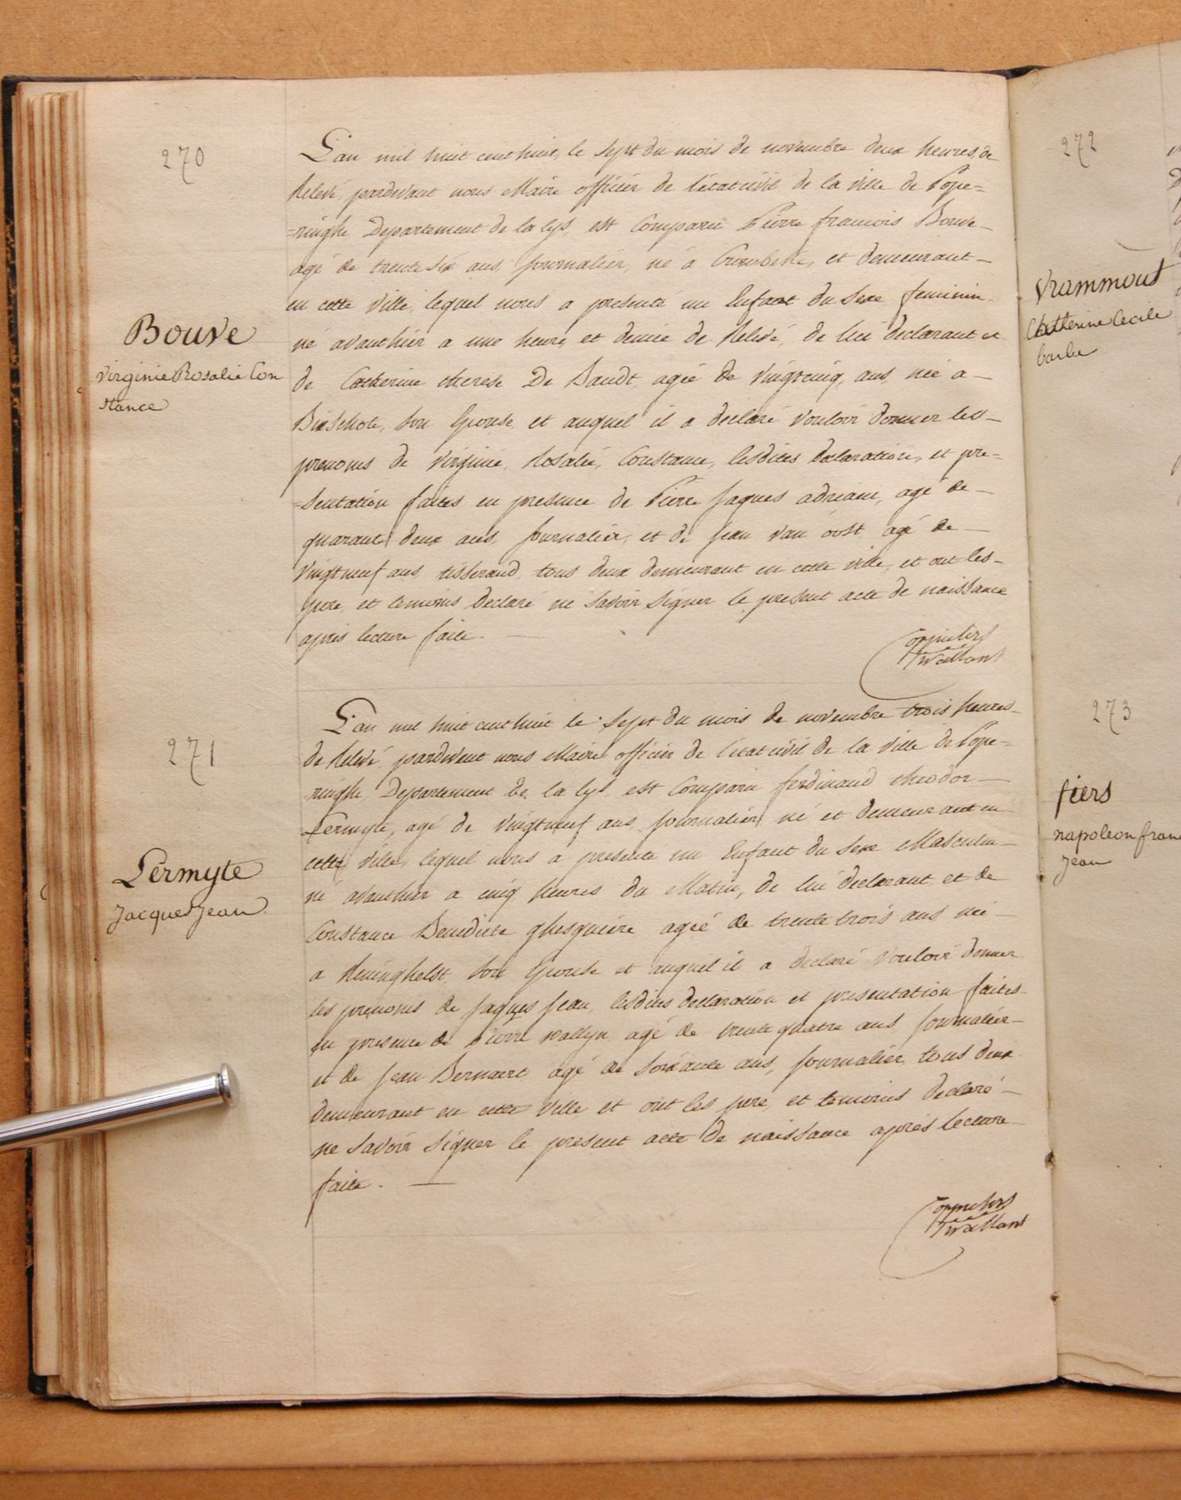 270
Bouve
Virginie Rosalie Con
stance
L'an mil huit cent huit, le sept du mois de novembre deux heures, de
Relevé, pardevant nous Maire officier de l'état civil de la ville de Pope=
=ringhe Departement de la lys est comparu Pierre francois Bouve
agé de trente six ans, journalier, né à Crombeke, et demeurant
en cette ville, lequel nous a presenté un Enfant du sexe feminin
né avanthier a une heure et demie de Relevé, de lui declarant et
de Catherine therese De Baudt, agée de vingtcinq ans, née a
Bixschote, son Epouse et auquel il a declaré vouloir donner les
prenoms de Virginie, Rosalie, Constance, lesdites declaration, et pre=
=sentation faites en presence de Pierre Jaques adriaen, agé de
quarante deux ans, journalier, et de Jean Van oost agé de
vingtneuf ans, tisserand, tous deux demeurant en cette ville, et ont les
pere, et temoins declaré ne savoir signer le present acte de naissance
après lecture faite.
271
Lermyte
Jacques Jean
L'an mil huit cent huit le sept du mois de novembre trois heures
de Relevé, pardevant nous Maire officier de l'état civil de la ville de Pope=
ringhe Departement de la lys est comparu ferdinand theodor
Lermyte, agé de vingtneuf ans, journalier, né et demeurant en
cette ville, lequel nous a presenté un Enfant du sexe Masculin
né avanthier a cinq heures du Matin, de lui declarant et de
Constance Benedicte ghesquiere agée de trente trois ans née
a Reninghelst son Epouse et auquel il a declaré vouloir donner
les prenoms de Jaques Jean, lesdites declaration et presentation faites
en presence de Pierre wallyn agé de trente quatre ans, journalier
et de Jean Bernaert agé de soixante ans, journalier, tous deux
demeurant en cette ville et ont les pere et temoins declaré
ne savoir signer le present acte de naissance après lecture
faite.
272
Vrammout
Catherine Cecile
barbe
273
fiers
napoleon fran
Jean